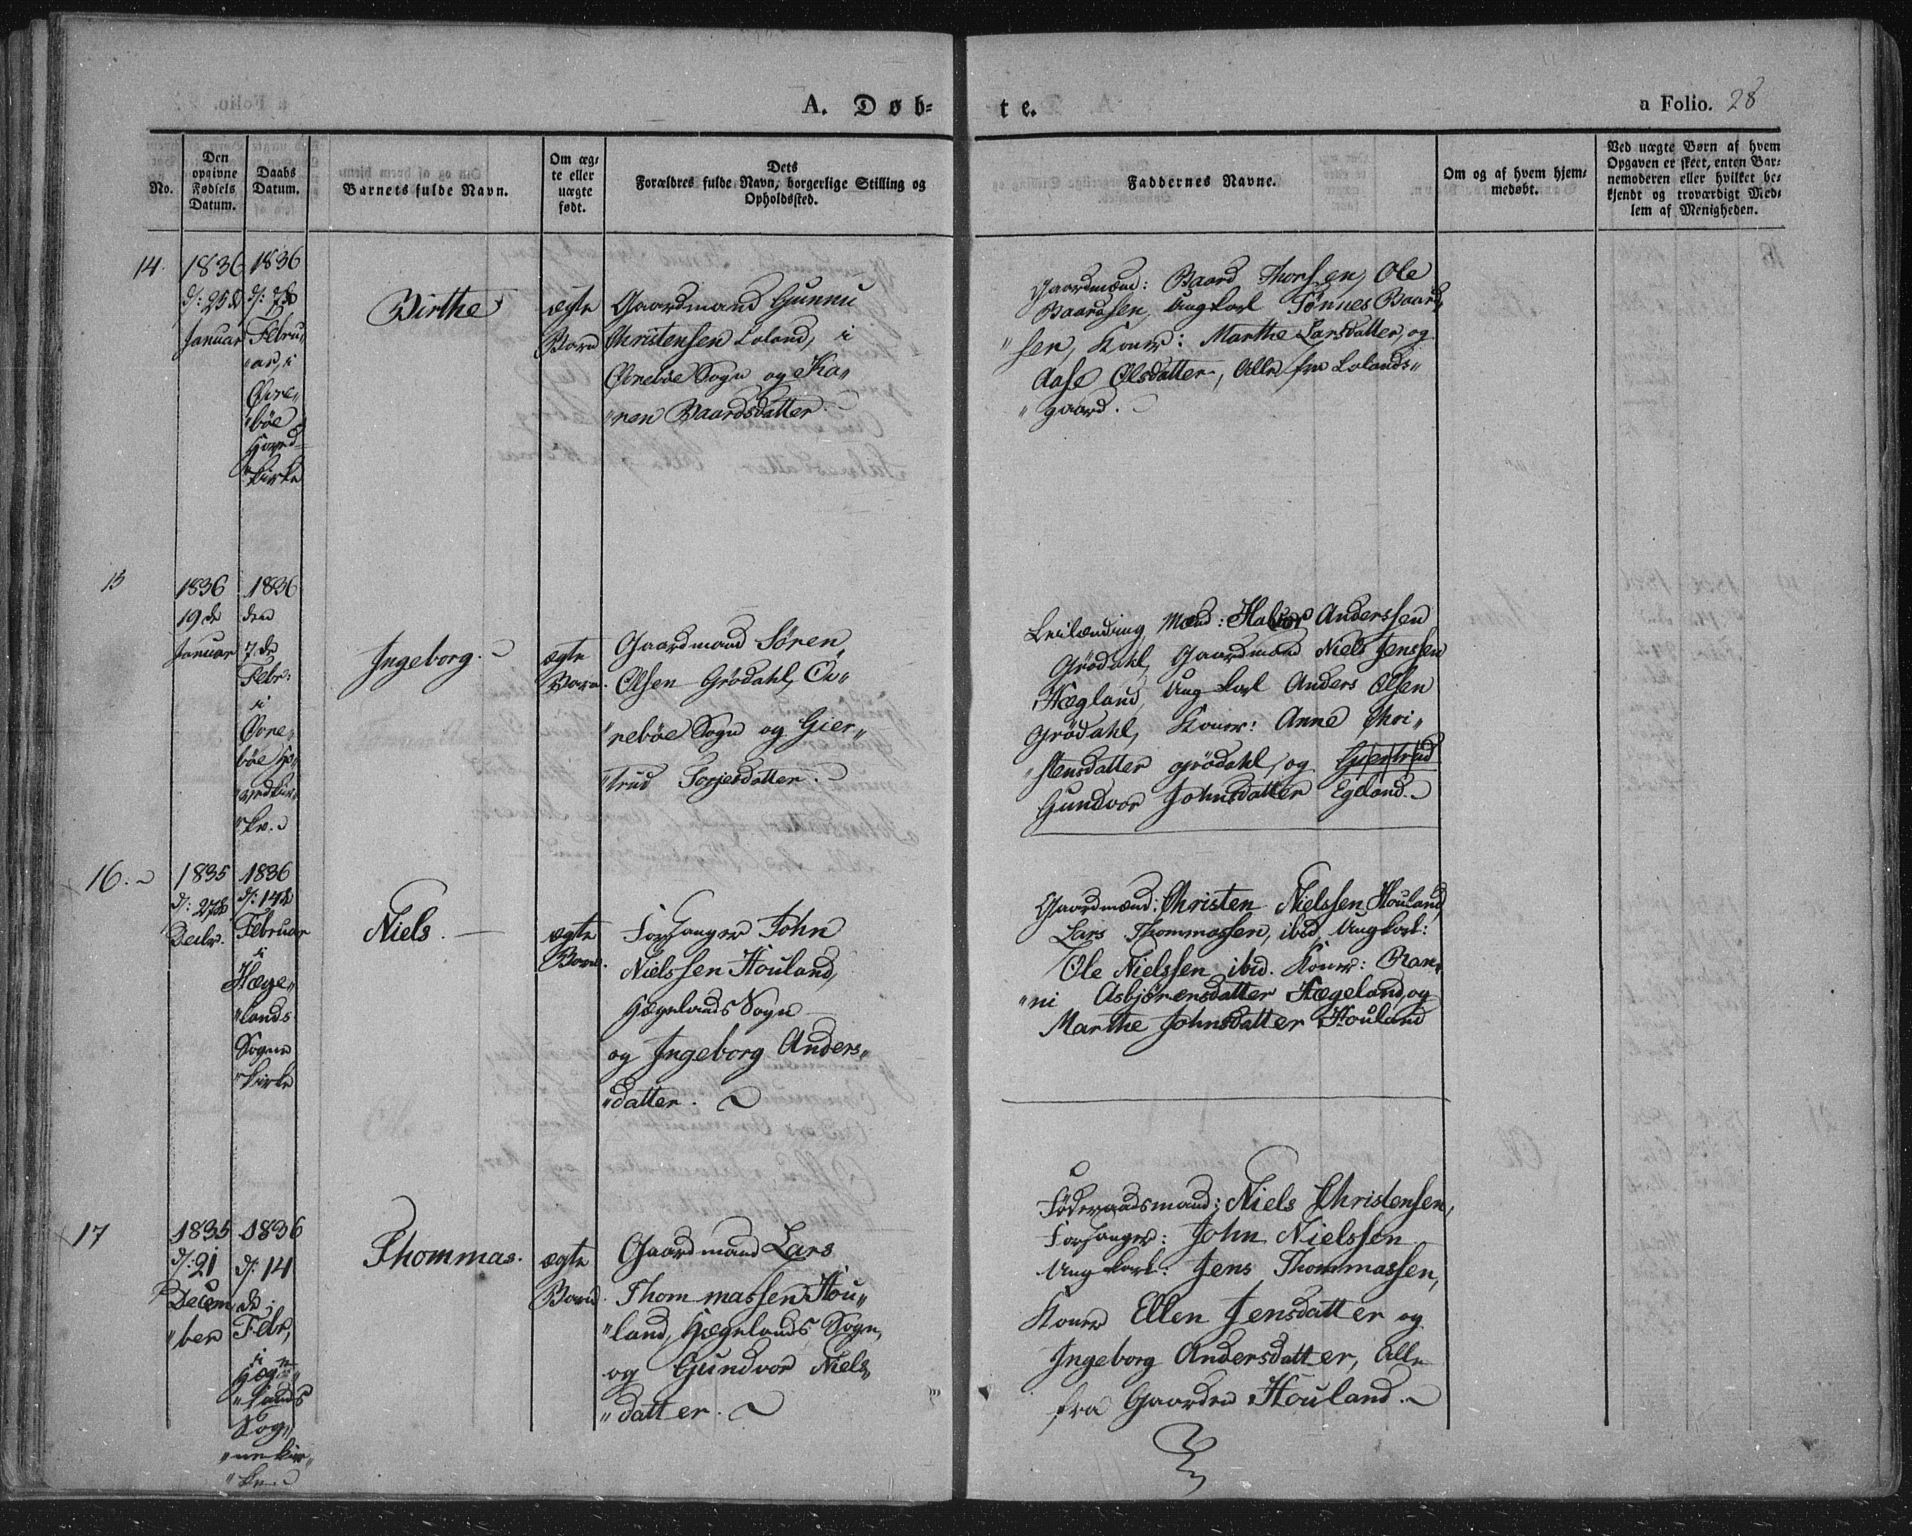 A. Døb-
te.
a Folio. 28
No.
Den
opgivne
Fødsels
Datum.
Daabs
Datum.
Barnets fulde Navn.
Om æg-
te eller
uægte
født.
Dets
Forældres fulde Navn, borgerlige Stilling og
Opholdssted.
Faddernes Navne.
Om og af hvem hjem-
medøbt.
Ved uægte Børn af hvem
Opgaven er skeet, enten Bar-
nemoderen eller hvilket be-
kjendt og troværdigt Med-
lem af Menigheden.
14.
1836
d: 25 de
Januar
1836
d: 7de
Febru„
„ar, i
Øvre„
„bøe
Hoved
„kirke
Birthe
ægte
Barn
Gaardmand Gunnu
Christensen Loland, i
Øvrebøe Sogn og Ka„
„ren Baardsdatter.
Gaardmænd: Baard Thorsen, Ole
Baardsen, Ungkarl Tønnes Baard„
„sen, Koner: Marthe Larsdatter, og
Aase Olsdatter, Alle fra Lolands„
„gaard.
15
1836
19 de
Januar
1836
den
7. de
Febr:
i
Øvre„
bøe Ho„
„vedkir„
„ke.
Ingeborg.
ægte
Barn.
Gaardmand Søren
Olsen Grødahl, Øv„
„rebøe Sogn og Gier„
„trud Torjesdatter.
Leilænding Mænd: Halvor Anderssen
Grödahl, Gaardmand Niels Jenssen
Hægland, Ung karl Anders Olsen
Grödahl, Koner: Anne Chri„
„stensdatter grödahl, og Giertrud
Gundvor Johnsdatter Egeland.
16.
1835
d: 27de
Decbr.
1836
d: 14de
Februar
i
Hæge„
„lands
Sogne
„kirke
Niels.
ægte
Barn.
Forpagter John
Nielssen Houland,
Hægelands Sogn
og Ingeborg Anders„
„datter.
Gaardmænd: Christen Nielssen Houland,
Lars Thommassen, ibid, Ungkarl:
Ole Nielssen ibid. Koner: Ran„
„ni Asbjörensdatter Hægeland, og
Marthe Johnsdatter Houland
17
1835
d: 21
Decem
„ber
1836
d: 14
de
Febr,
i
Hæge„
„lands
Sog„
„nekir„
„ke.
Thommas.
ægte
Barn.
Gaardmand Lars
Thommassen Hou„
„land, Hægelands Sogn,
og Gundvor Niels„
„datter.
Föderaadsmand: Niels Christensen,
Forpagter: John Nielssen
Ung karl: Jens Thommassen,
Koner Ellen Jensdatter og
Ingeborg Andersdatter, Alle
fra Gaarden Houland.